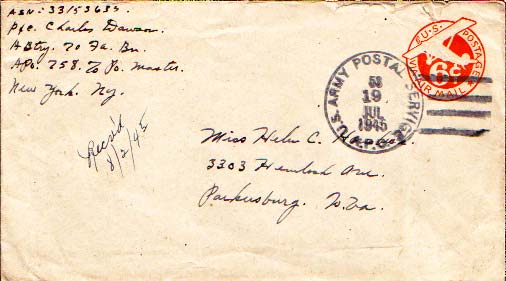 ASN: 33153635
Pfc. Charles Dawson
A Btry. 70 Fa. Bn.
APO. 758. % Po. Master.
New York. Ny.
U.S. POSTAGE
6¢
VIA AIR MAIL
U.S. ARMY POSTAL SERVICE
53
19
JUL
1945
A.P.O.
Rec'd
8/2/45
Miss Helen C.
3303 Hemlock Ave.
Parkersburg. W. Va.